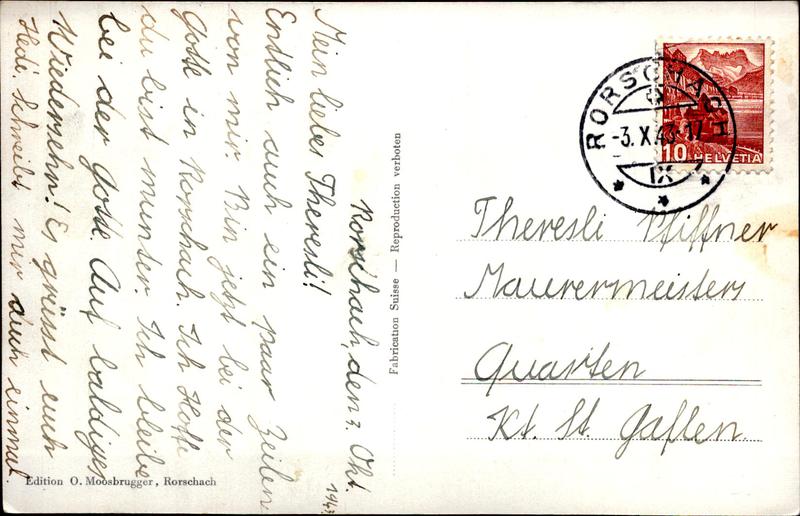 Rorschach, den 3. Okt.
1943
Mein liebes Theresli!
Endlich auch ein paar Zeilen
von mir Bin jetzt bei der
Gotte in Rorschach. Ich Hoffe
du bist munter. Ich bleibe
bei der Gotte. Auf baldiges
Wiedersehn! Es grüsst euch
Hedi, schreibt mir auch einmal.
Fabrication Suisse — Reproduction verboten
Edition O. Moosbrugger, Rorschach
RORSCHACH
-3.X.43-17
IX
10 HELVETIA
Theresli Pfiffner
Maurermeisters
Quarten
Kt. St. Gallen.